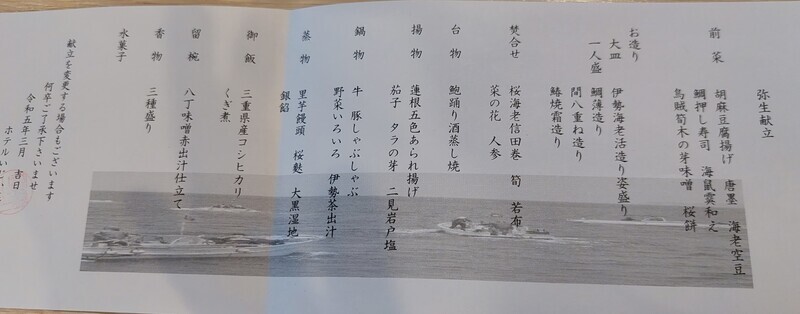 弥生献立
前菜 胡麻豆腐揚げ 唐墨 海老空豆
鯛押し寿司 海鼠霙和え
烏賊筍木の芽味噌 桜餅
お造り
大皿 伊勢海老活造り姿盛り
一人盛 鯛薄造り
間八重ね造り
鰆焼霜造り
焚合せ 桜海老信田巻 筍 若布
菜の花 人参
台物 鮑踊り酒蒸し焼
揚物 蓮根五色あられ揚げ
茄子 タラの芽 二見岩戸塩
鍋物 牛 豚しゃぶしゃぶ
野菜いろいろ 伊勢茶出汁
蒸物 里芋饅頭 桜麩 大黒湿地
銀餡
御飯 三重県産コシヒカリ
くぎ煮
留椀 八丁味噌赤出汁仕立て
香物 三種盛り
水菓子
献立を変更する場合もございます
何卒ご了承下さいませ
令和五年三月 吉日
ホテル